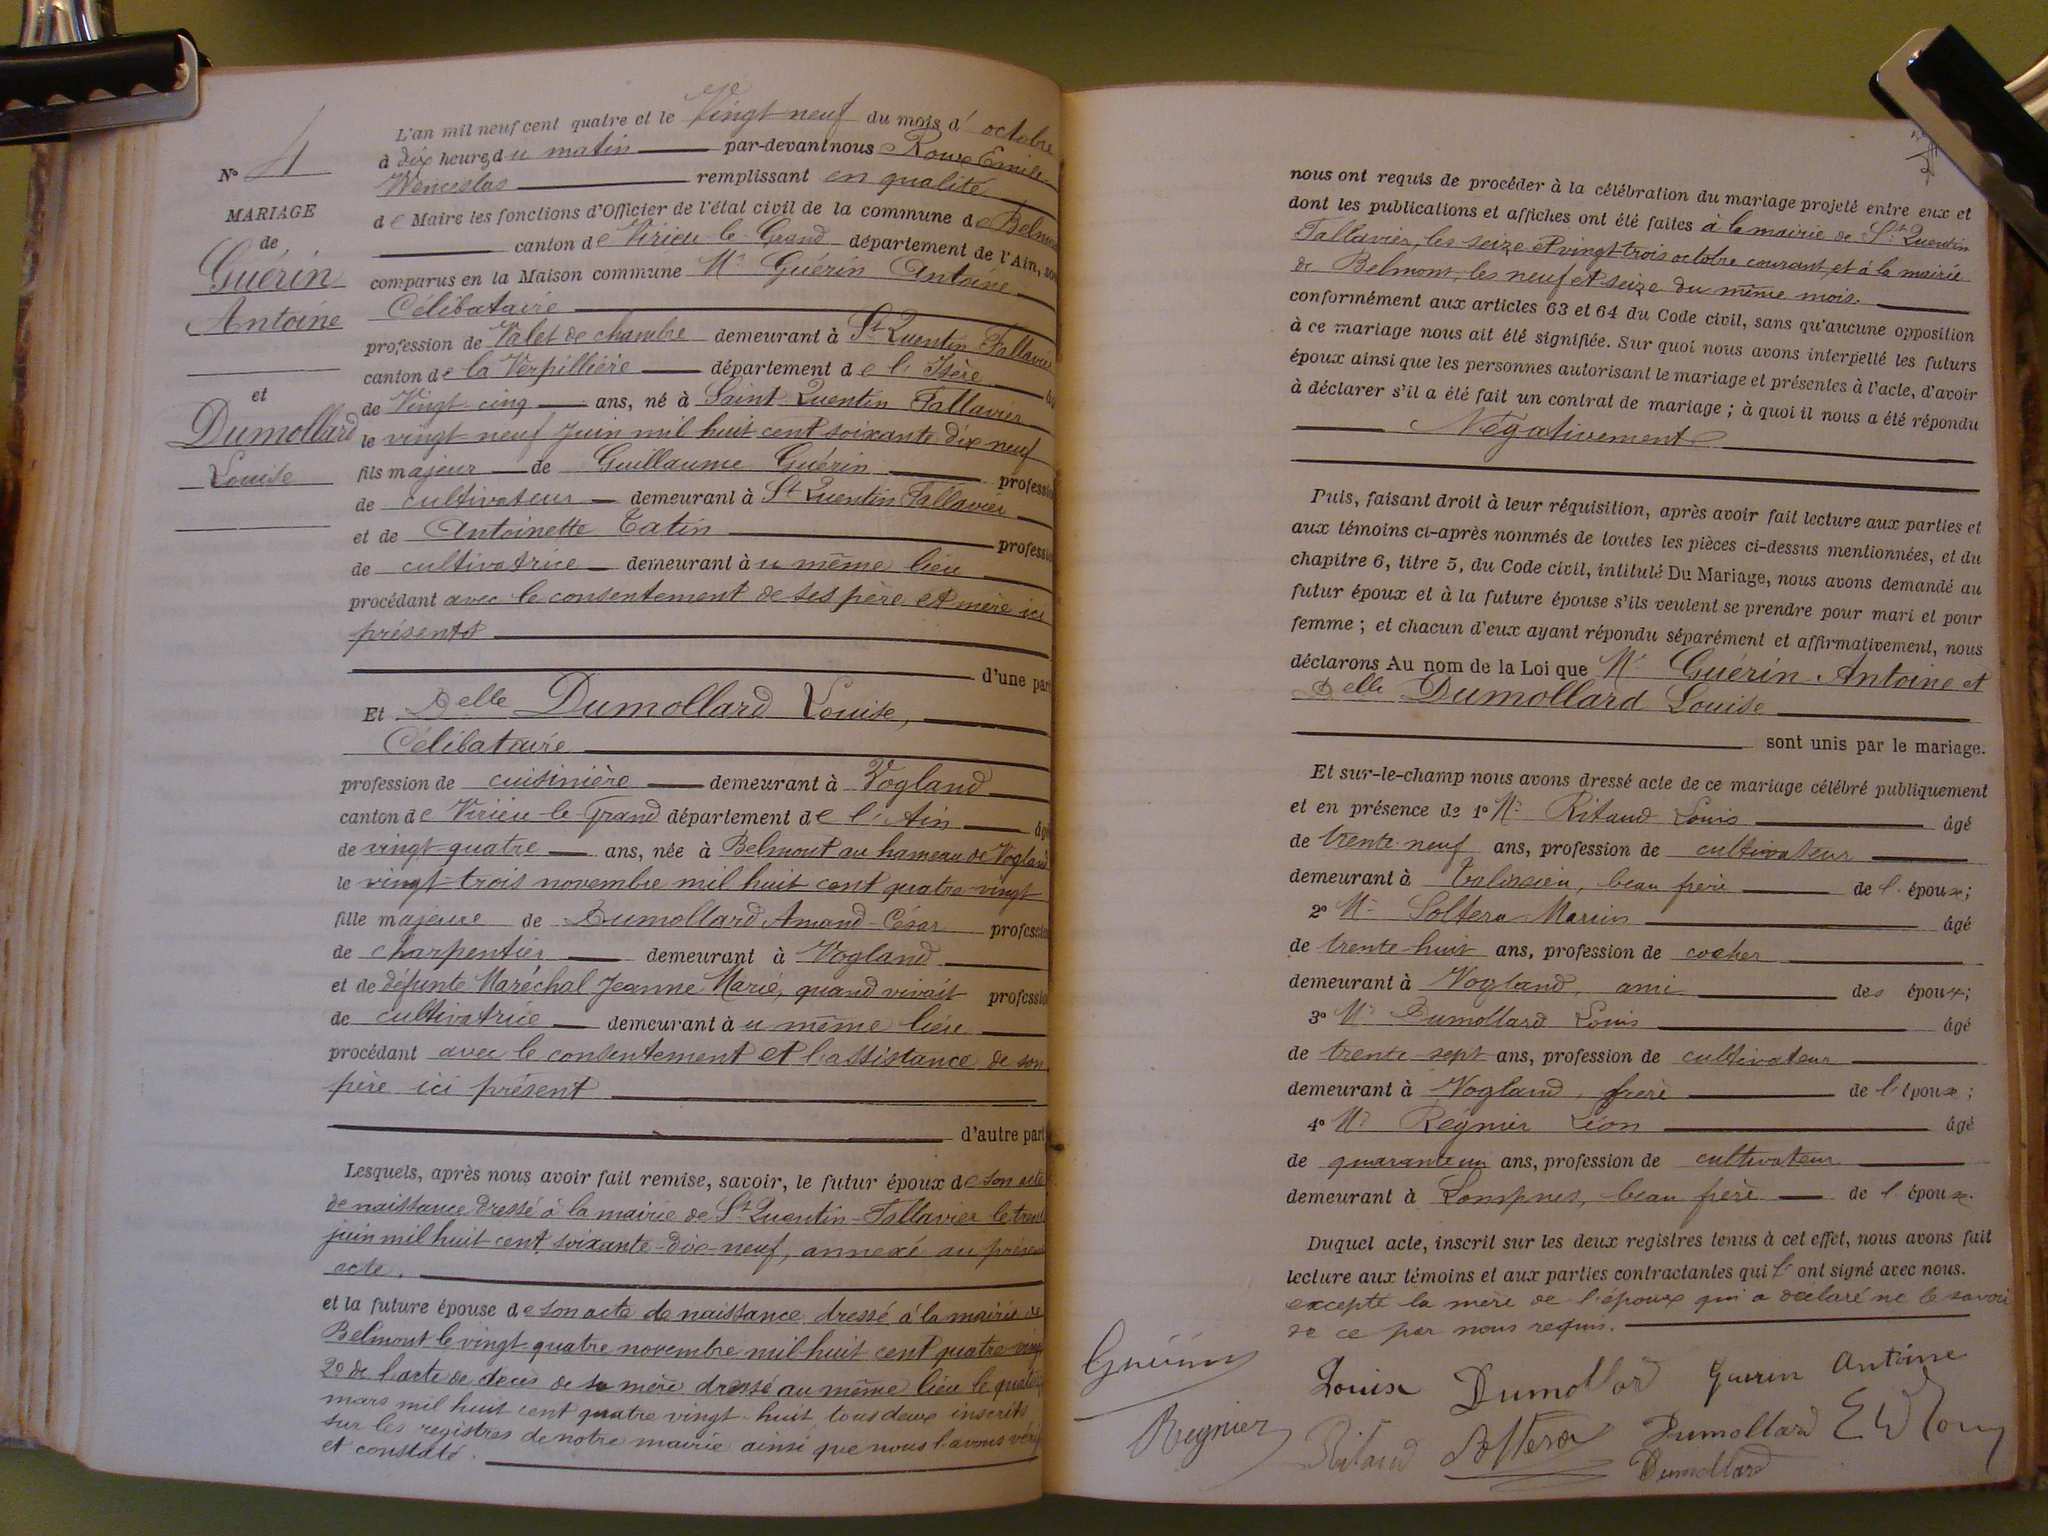 N° 4
MARIAGE
de
Guérin
Antoine
et
Dumollard
Louise
L'an mil neuf cent quatre et le Vingt neuf du mois d'octobre
à dix heures du matin par-devant nous Roux Emile
Wenceslas remplissant en qualité
de Maire les fonctions d'Officier de l'état civil de la commune de Belmont
canton de Virieu-le-Grand département de l'Ain, sont
comparus en la Maison commune Mr Guérin Antoine
Célibataire
profession de Valet de chambre demeurant à St Quentin Fallavier
canton de la Verpillière département de l'Isère
de Vingt cinq ans, né à Saint Quentin Fallavier
le vingt-neuf Juin mil huit cent soixante dix neuf
fils majeur de Guillaume Guérin profession
de cultivateur demeurant à St Quentin Fallavier
et de Antoinette Tatin profession
de cultivatrice demeurant à u même lieu
procédant avec le consentement de ses père et mère ici
présents
d'une part
Et Delle Dumollard Louise,
Célibataire
profession de cuisinière demeurant à Vogland
canton de Virieu-le-Grand département de l'Ain âgé
de vingt-quatre ans, née à Belmont au hameau de Vogland
le vingt-trois novembre mil huit cent quatre-vingt
fille majeure de Dumollard Amand-César profession
de charpentier demeurant à Vogland
et de défunte Maréchal Jeanne Marie, quand vivait profession
de cultivatrice demeurant à u même lieu
procédant avec le consentement et l'assistance de son
père ici présent
d'autre part
Lesquels, après nous avoir fait remise, savoir, le futur époux de son acte
de naissance dressé à la mairie de St Quentin-Fallavier le trente
juin mil huit cent soixante-dix-neuf, annexé au présent
acte.
et la future épouse de son acte de naissance dressé à la mairie de
Belmont le vingt-quatre novembre mil huit cent quatre-vingt
2° de l'acte de décès de sa mère dressé au même lieu le quatre
mars mil huit cent quatre vingt-huit tous deux inscrits
sur les registres de notre mairie ainsi que nous l'avons vérifié
et constaté.
nous ont requis de procéder à la célébration du mariage projeté entre eux et
dont les publications et affiches ont été faites à la mairie de St Quentin
Fallavier, les seize et vingt-trois octobre courant, et à la mairie
de Belmont, les neuf et seize du même mois.
conformément aux articles 63 et 64 du Code civil, sans qu'aucune opposition
à ce mariage nous ait été signifiée. Sur quoi nous avons interpellé les futurs
époux ainsi que les personnes autorisant le mariage et présentes à l'acte, d'avoir
à déclarer s'il a été fait un contrat de mariage ; à quoi il nous a été répondu
Négativement
Puis, faisant droit à leur réquisition, après avoir fait lecture aux parties et
aux témoins ci-après nommés de toutes les pièces ci-dessus mentionnées, et du
chapitre 6, titre 5, du Code civil, intitulé Du Mariage, nous avons demandé au
futur époux et à la future épouse s'ils veulent se prendre pour mari et pour
femme ; et chacun d'eux ayant répondu séparément et affirmativement, nous
déclarons Au nom de la Loi que Mr Guérin Antoine et
Delle Dumollard Louise
sont unis par le mariage.
Et sur-le-champ nous avons dressé acte de ce mariage célébré publiquement
et en présence de 1° Mr Ritaud Louis âgé
de trente-neuf ans, profession de cultivateur
demeurant à beau frère de l'époux ;
2° Mr Soltera Marius âgé
de trente-huit ans, profession de cocher
demeurant à Vogland, ami des époux ;
3° Mr Dumollard Louis âgé
de trente-sept ans, profession de cultivateur
demeurant à Vogland, frère de l'épouse ;
4° Mr Régnier Léon âgé
de quarante un ans, profession de cultivateur
demeurant à Lompnes, beau frère de l'épouse.
Duquel acte, inscrit sur les deux registres tenus à cet effet, nous avons fait
lecture aux témoins et aux parties contractantes qui l'ont signé avec nous.
excepté la mère de l'époux qui a déclaré ne le savoir
de ce par nous requis.
Guérin Louise Dumollard Guerin Antoine
Regnier Ritaud Soltera Dumollard E W Roux
Dumollard